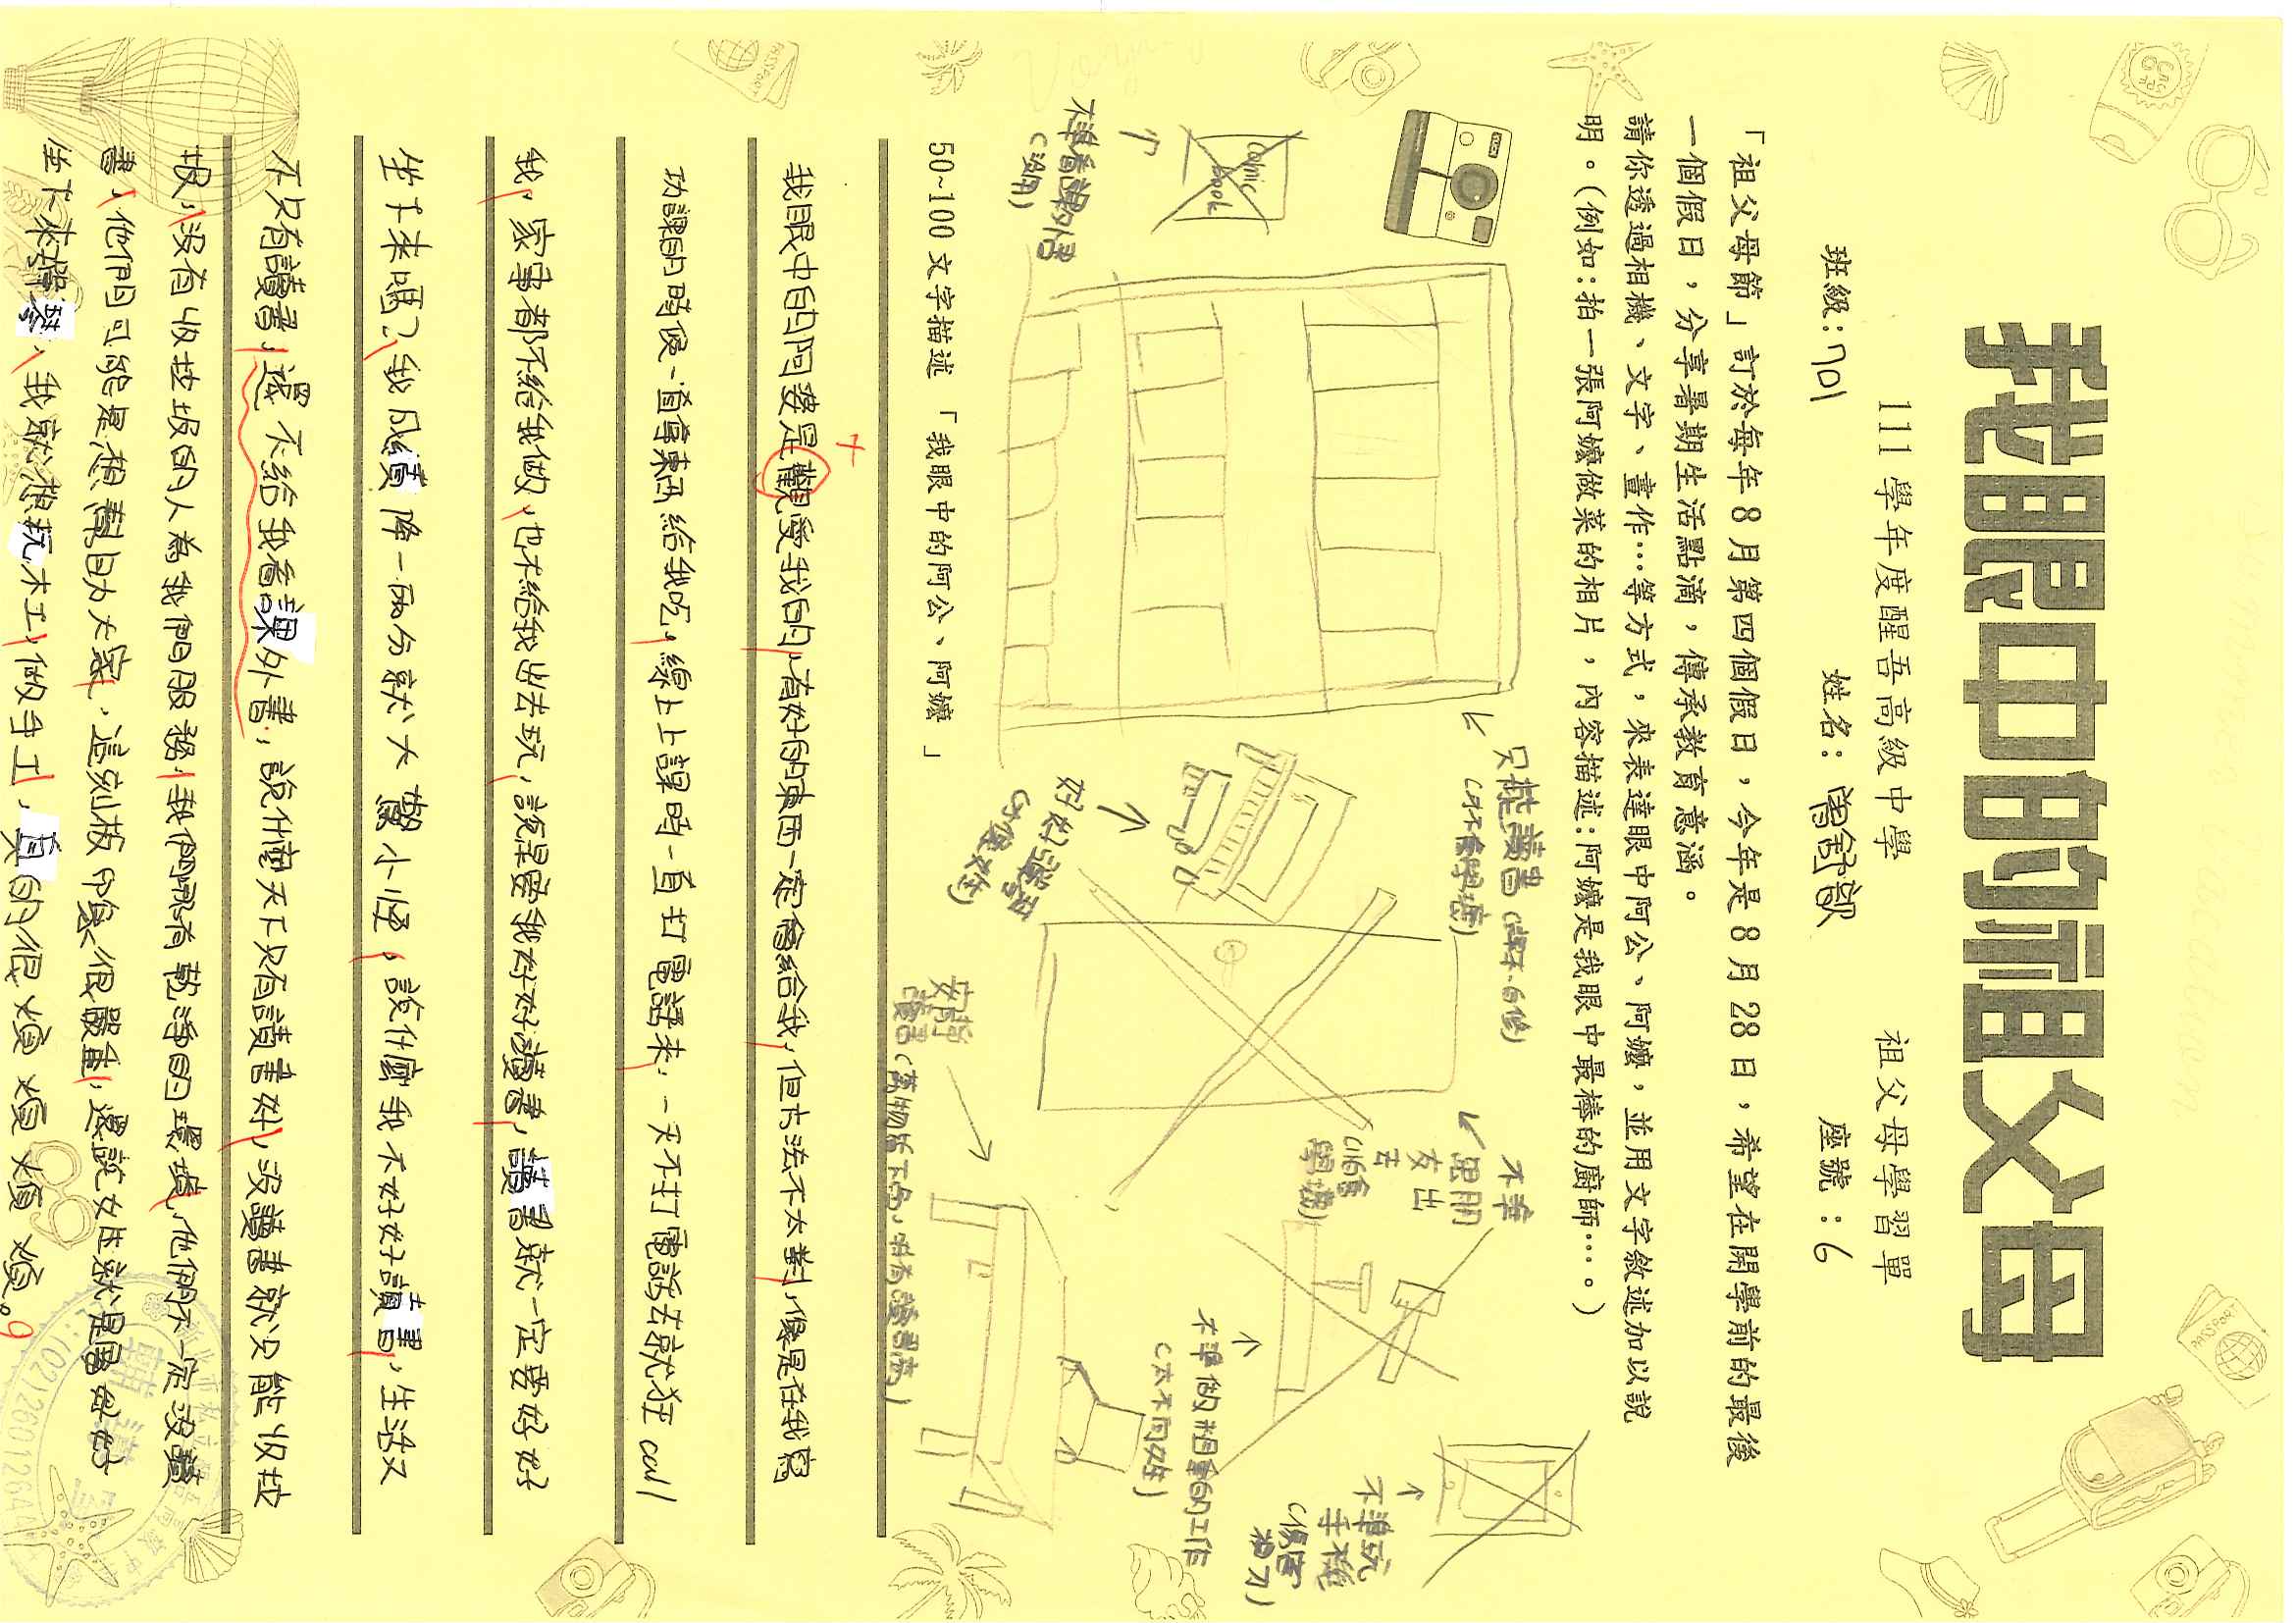 我眼中的祖父母
111 學年度醒吾高級中學 祖父母學習單
班級：701 姓名：曾 歆 座號：6
「祖父母節」訂於每年 8 月第四個假日，今年是 8 月 28 日，希望在開學前的最後
一個假日，分享暑期生活點滴，傳承教育意涵。
請你透過相機、文字、畫作…等方式，來表達眼中阿公、阿嬤，並用文字敘述加以說
明。（例如：拍一張阿嬤做菜的相片，內容描述：阿嬤是我眼中最棒的廚師…。）
Comic
book
不準看課外書
(沒用)
只能讀書
(才不會學壞)
好好彈琴
不準
跟朋
友出
去
(會
學壞)
不準做粗重的工作
不準玩
手機
50~100 文字描述 「我眼中的阿公、阿嬤 」
我眼中的阿婆是觀愛我的，有好的東西一定會給我，但方法不太對，像是在我寫
功課的時後一直拿東西給我吃，線上上課時一直打電話來，一天不打電話去就狂 call
我，家事都不給我做，也不給我出去玩，說是要我好好讀書，讀書就一定要好好
坐下來嗎？我成績降一兩分就大驚小怪，說什麼我不好好讀書，生活又
不只有讀書，還不給我看課外書，說什麼天下只有讀書好，沒讀書就只能收垃
圾，沒有收垃圾的人為我們服務，我們哪有乾淨的環境，他們不一定沒讀
書，他們可能是想幫助大家，這刻板印象很嚴重，還說女生就是要好好
坐下來彈琴，我就想玩木工，做手工，真的很煩煩煩煩。